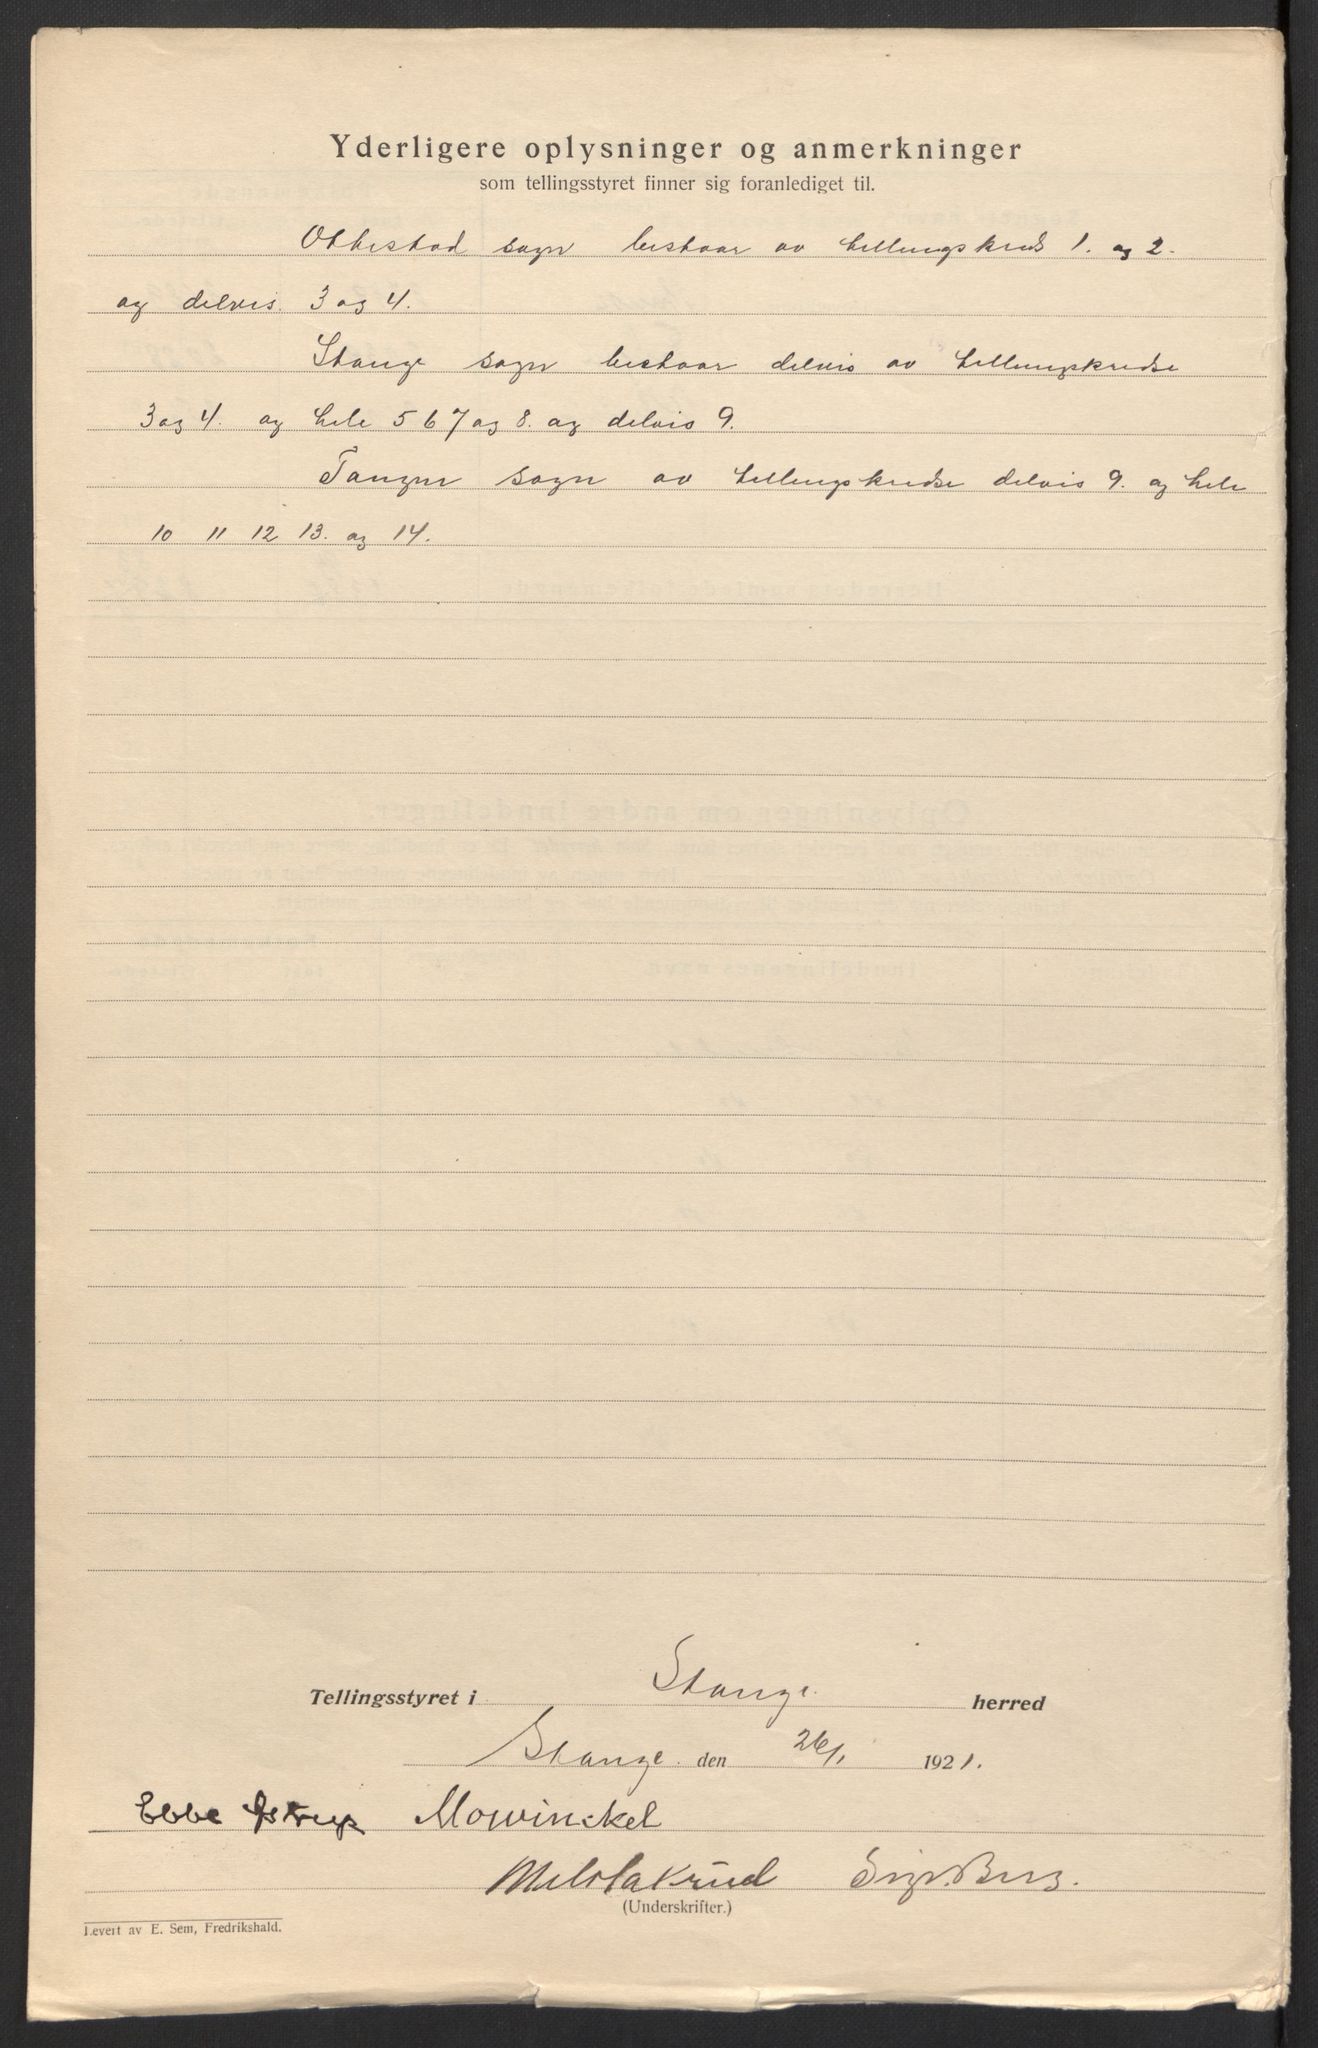 Yderligere oplysninger og anmerkninger
som tellingsstyret finner sig foranlediget til.
Ottestad sogn bestaar av tellingskreds 1. og 2.
og delvis. 3 og 4.
Stange sogn bestaar delvis av tellingskredse
3 og 4. og hele 5 6 7 og 8. og delvis 9.
Tangen sogn av tellingskredse delvis 9. og hele
10 11 12 13. og 14.
Tellingsstyret i Stange. herred
Stange. den 26/1. 1921.
Ebbe Astrup Mowinckel
Sigv. Berg.
(Underskrifter.)
Levert av E. Sem, Fredrikshald.